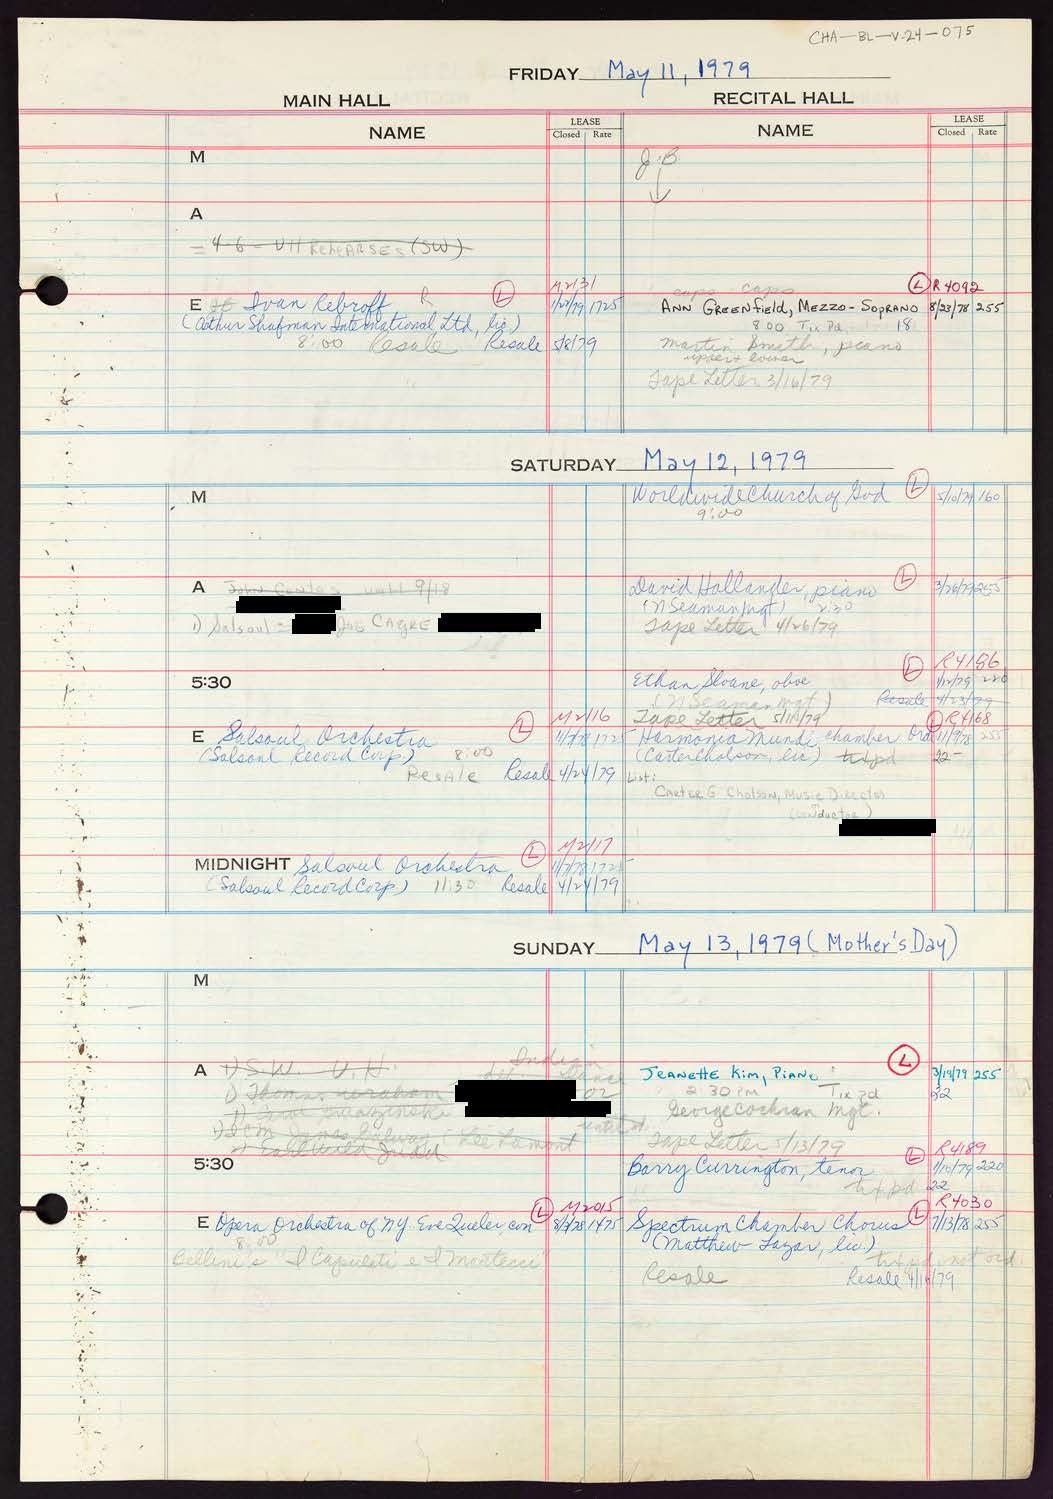 CHA-BL-V.24-075
FRIDAY May 11, 1979
MAIN HALL
RECITAL HALL
NAME
LEASE
Closed Rate
NAME
LEASE
Closed Rate
M
J.B.
A
4-6 - UH Rehearses (SW)
M2131
E Ivan Rebroff R L 1/27/79 1725
(Arthur Shafman International Ltd, lic.)
8:00 Resale Resale 5/8/79
L R4092
Ann Greenfield, Mezzo-Soprano 8/23/78 255
8:00 Tix Pd. 18
Martin Smith, piano
upper & lower
Tape Letter 3/16/79
SATURDAY May 12, 1979
M
Worldwide Church of God L 5/10/79 160
9:00
A
9/18
1) Salsoul = Joe Cayre
David Hollander, piano L 3/26/79 255
(N Seaman mgt) 2:30
Tape Letter 4/26/79
5:30
L R4186
Ethan Sloane, oboe 1/12/79 220
(N Seaman mgt) Resale 4/23/79
Tape Letter 5/11/79
L M2116
E Salsoul Orchestra 11/7/78 1725
(Salsoul Record Corp.) 8:00
Resale Resale 4/24/79
L R4168
Harmonia Mundi chamber Orch 11/9/78 255
(Carter Cholson, lic) tix pd 22-
List:
Carter G Cholson, Music Director
(conductor)
L M2117
MIDNIGHT Salsoul Orchestra 11/7/78 1725
(Salsoul Record Corp) 11:30 Resale 4/24/79
SUNDAY May 13, 1979 (Mother's Day)
M
A 1) S.W. U.H.
Indian
Dance
1) Thomas
or
Lee Lamont
L
Jeanette Kim, Piano 3/19/79 255
2:30 PM Tix pd 22
George Cochran Mgt.
Tape Letter 5/13/79
5:30
L R4189
Barry Currington, tenor 1/10/79 220
tix pd 22
L M2015
E Opera Orchestra of NY. Eve Queler, con 8/3/78 1475
8:00
Bellini's "I Capuleti e I Montecci"
L R4030
Spectrum Chamber Chorus 7/13/78 255
(Matthew Lazar, lic.)
tix pd. not ord.
Resale Resale 4/16/79